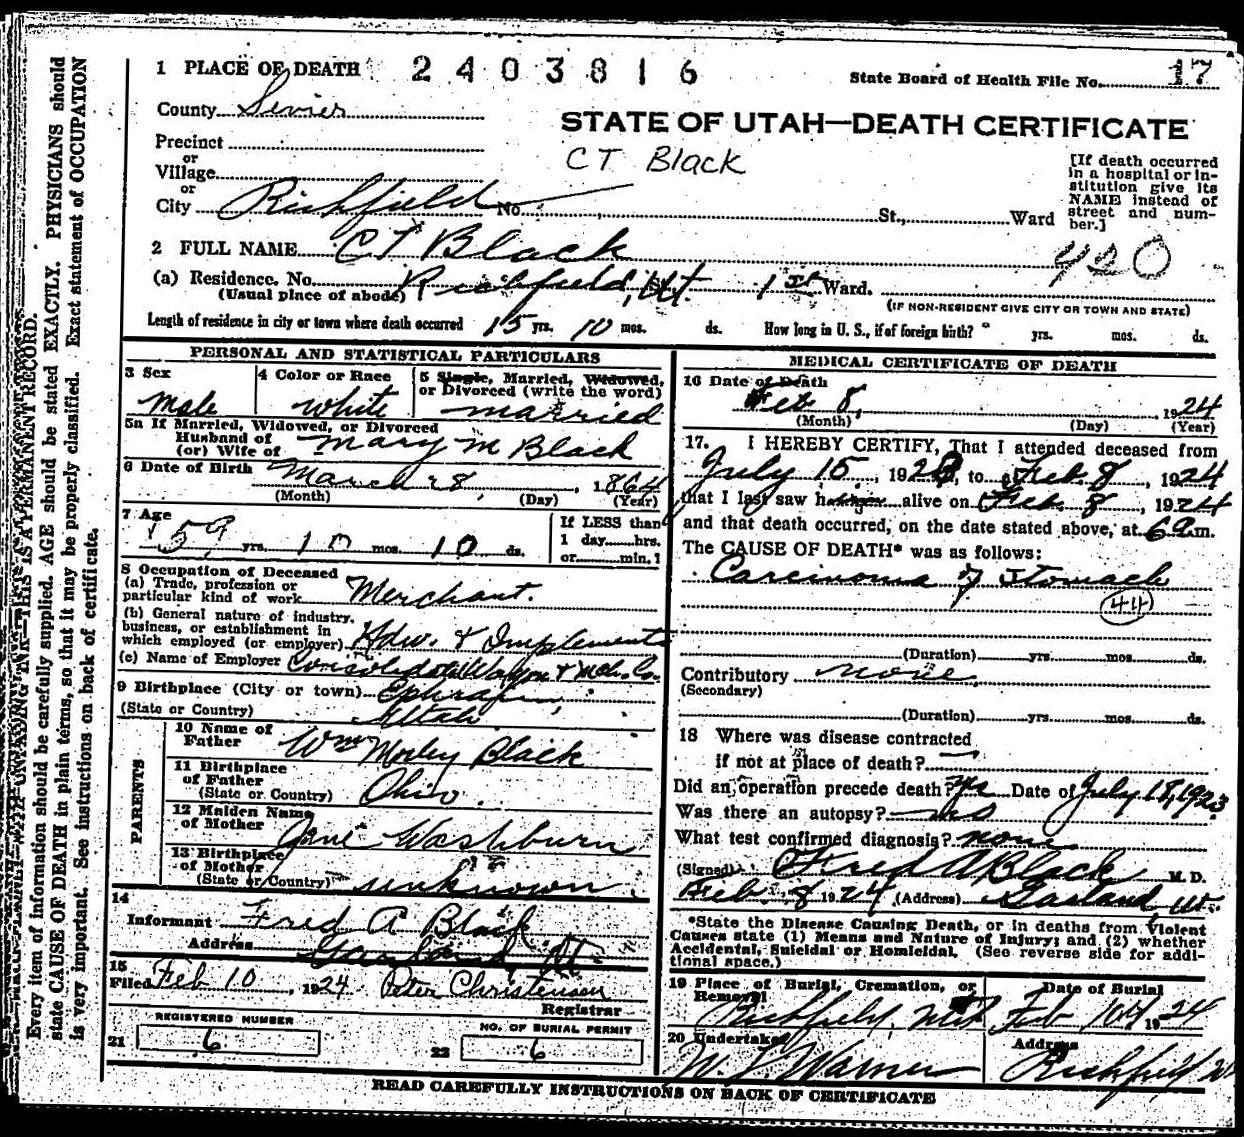 1 PLACE OF DEATH 2403816 State Board of Health File No. 17
County Sevier
STATE OF UTAH—DEATH CERTIFICATE
Precinct
CT Black
or
Village
or
City Richfield No. St., Ward
[If death occurred in a hospital or institution give its NAME instead of street and number.]
2 FULL NAME CT Black
420
(a) Residence. No. Richfield, Ut. St. 1st Ward.
(Usual place of abode) (IF NON-RESIDENT GIVE CITY OR TOWN AND STATE)
Length of residence in city or town where death occurred 15 yrs. 10 mos. ds. How long in U. S., if of foreign birth? yrs. mos. ds.
PERSONAL AND STATISTICAL PARTICULARS
3 Sex
Male
4 Color or Race
White
5 Single, Married, Widowed,
or Divorced (write the word)
married
5a If Married, Widowed, or Divorced
Husband of
(or) Wife of Mary M Black
6 Date of Birth March 28, 1864
(Month) (Day) (Year)
7 Age
59 yrs. 10 mos. 10 ds.
If LESS than
1 day......hrs.
or......min.?
8 Occupation of Deceased
(a) Trade, profession or
particular kind of work Merchant.
(b) General nature of industry,
business, or establishment in
which employed (or employer) Hdw. & Implements
(c) Name of Employer Consolidated Wagon & Mch. Co.
9 Birthplace (City or town) Ephraim,
(State or Country) Utah
PARENTS
10 Name of
Father Wm Morley Black
11 Birthplace
of Father
(State or Country) Ohio.
12 Maiden Name
of Mother Jane Washburn
13 Birthplace
of Mother
(State or Country) unknown.
14
Informant Fred A Black
Address Garland, Ut
15
Filed Feb 10, 1924 Peter Christensen
Registrar
REGISTERED NUMBER
21 6
NO. OF BURIAL PERMIT
22 6
MEDICAL CERTIFICATE OF DEATH
16 Date of Death
Feb 8, 1924
(Month) (Day) (Year)
17. I HEREBY CERTIFY, That I attended deceased from
July 15, 1923, to Feb. 8, 1924
that I last saw h alive on Feb. 8, 1924
and that death occurred, on the date stated above, at 6 a.m.
The CAUSE OF DEATH* was as follows:
Carcinoma of Stomach
44
(Duration) yrs. mos. ds.
Contributory none
(Secondary)
(Duration) yrs. mos. ds.
18 Where was disease contracted
if not at place of death?
Did an operation precede death? yes Date of July 18, 1923
Was there an autopsy? no
What test confirmed diagnosis? none
(Signed) Fred A Black M. D.
Feb. 8 1924 (Address) Garland, Ut.
*State the Disease Causing Death, or in deaths from Violent
Causes state (1) Means and Nature of Injury; and (2) whether
Accidental, Suicidal or Homicidal. (See reverse side for addi-
tional space.)
19 Place of Burial, Cremation, or
Removal
Richfield, Utah
Date of Burial
Feb 10th 1924
20 Undertaker
W. Warner
Address
Richfield
READ CAREFULLY INSTRUCTIONS ON BACK OF CERTIFICATE
THIS IS A PERMANENT RECORD.
Every item of information should be carefully supplied. AGE should be stated EXACTLY. PHYSICIANS should
state CAUSE OF DEATH in plain terms, so that it may be properly classified. Exact statement of OCCUPATION
is very important. See instructions on back of certificate.